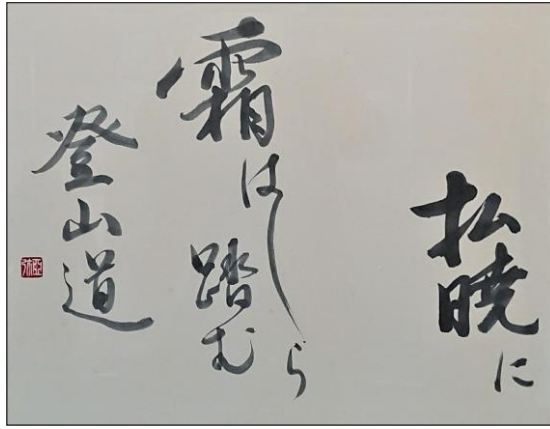 払暁に
霜はしら踏む
登山道